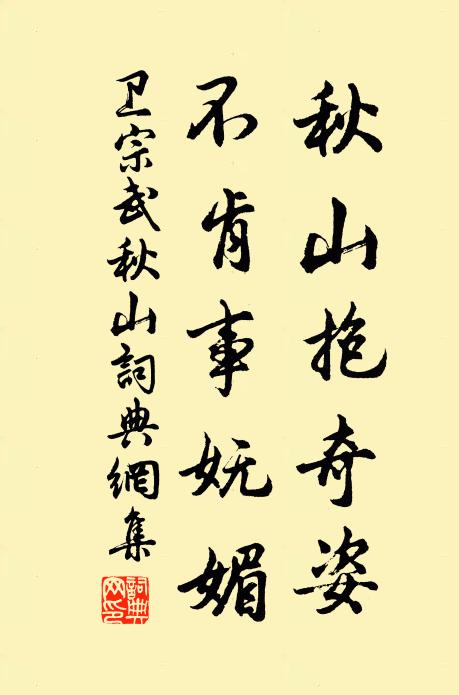 秋山抱奇姿
不肯事妩媚
卫宗武秋山詞典網集
詞典網印